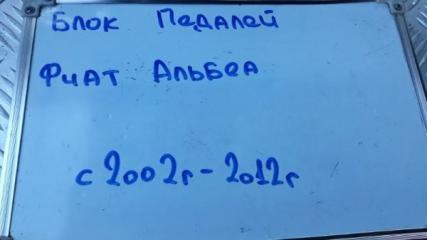 Блок Педалей
Фиат Альбеа
с 2002г - 2012г